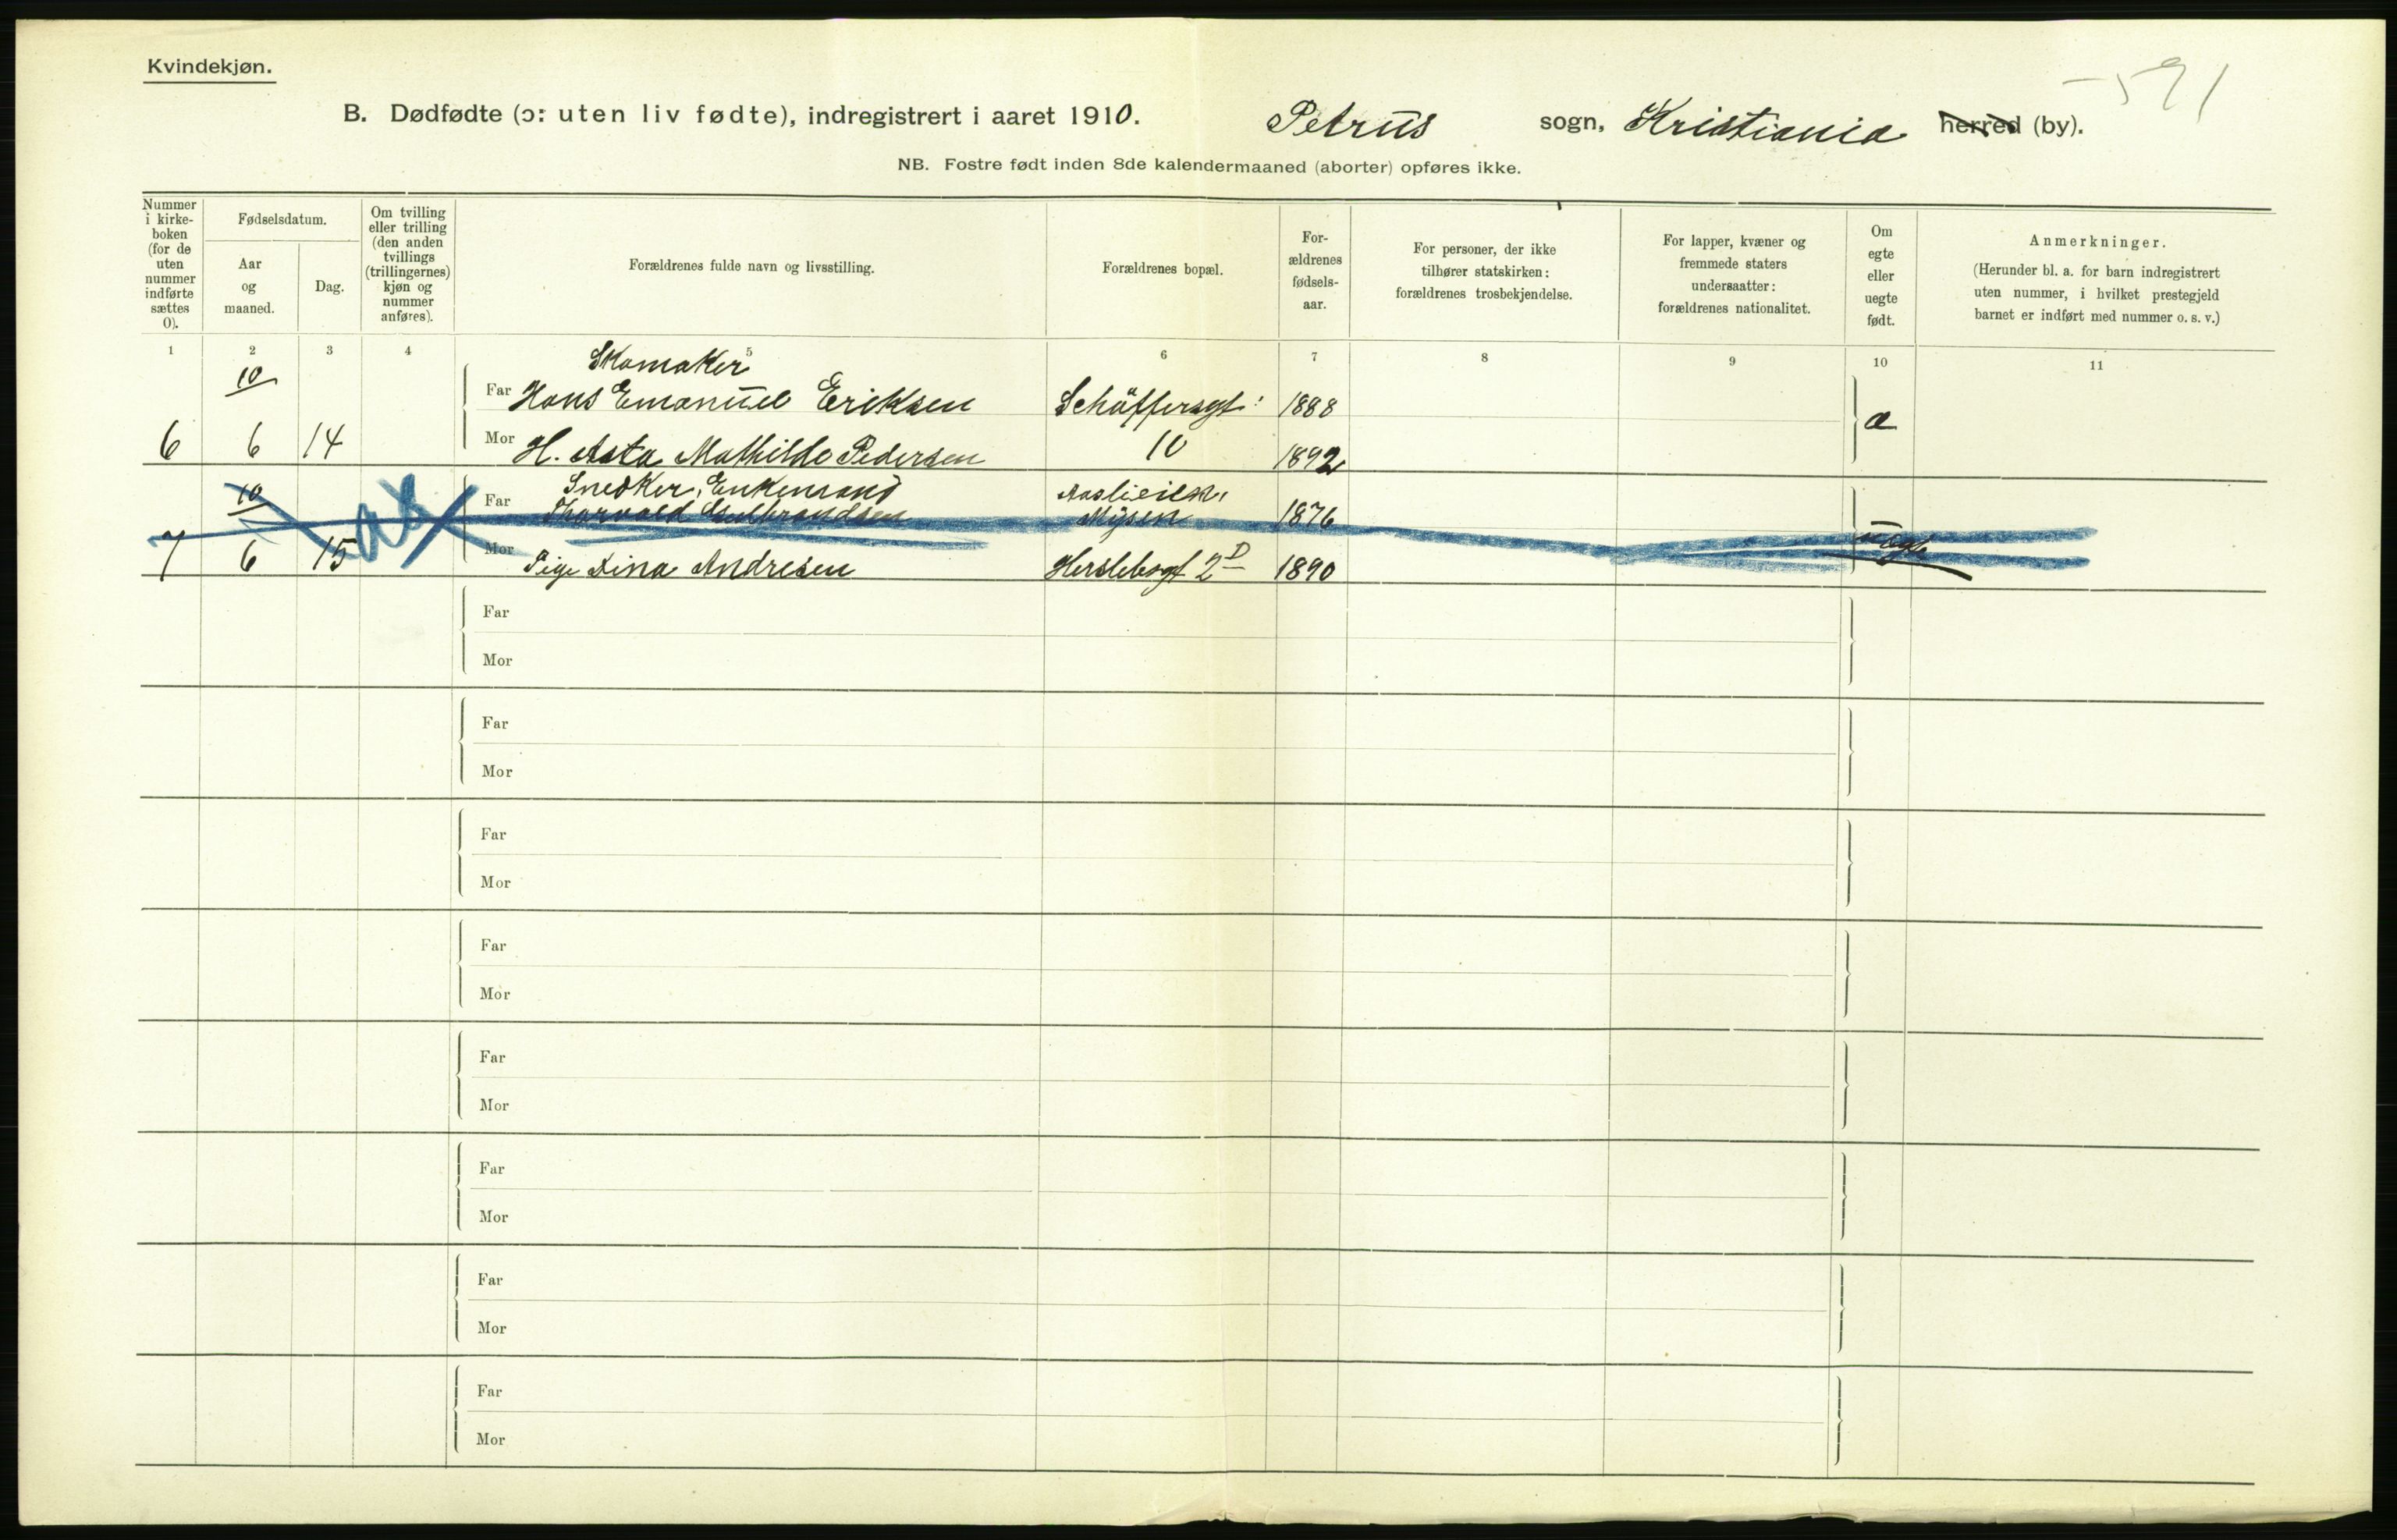 Kvindekjøn.
591
B. Dødfødte (ɔ: uten liv fødte), indregistrert i aaret 1910. Petrus sogn, Kristiania herred (by).
NB. Fostre født inden 8de kalendermaaned (aborter) opføres ikke.
Nummer i kirke-boken (for de uten nummer indførte sættes 0).
Fødselsdatum.
Aar og maaned.
Dag.
Om tvilling eller trilling (den anden tvillings (trillingernes) kjøn og nummer anføres).
Forældrenes fulde navn og livsstilling.
Forældrenes bopæl.
For-ældrenes fødsels-aar.
For personer, der ikke tilhører statskirken: forældrenes trosbekjendelse.
For lapper, kvæner og fremmede staters undersaatter: forældrenes nationalitet.
Om egte eller uegte født.
Anmerkninger.
(Herunder bl. a. for barn indregistrert uten nummer, i hvilket prestegjeld barnet er indført med nummer o. s. v.)
1 2 3 4 5 6 7 8 9 10 11
10 Skomaker
Far Hans Emanuel Eriksen Schäffersgt: 1888
6 6 14 Mor H. Asta Mathilde Pedersen 10 1892
10 Snedker, Enkemand
Far Thorvald Gulbrandsen Mysen 1876
7 6 15 Mor Pige Dina Andresen Herslebsgt 2D 1890
Far
Mor
Far
Mor
Far
Mor
Far
Mor
Far
Mor
Far
Mor
Far
Mor
Far
Mor